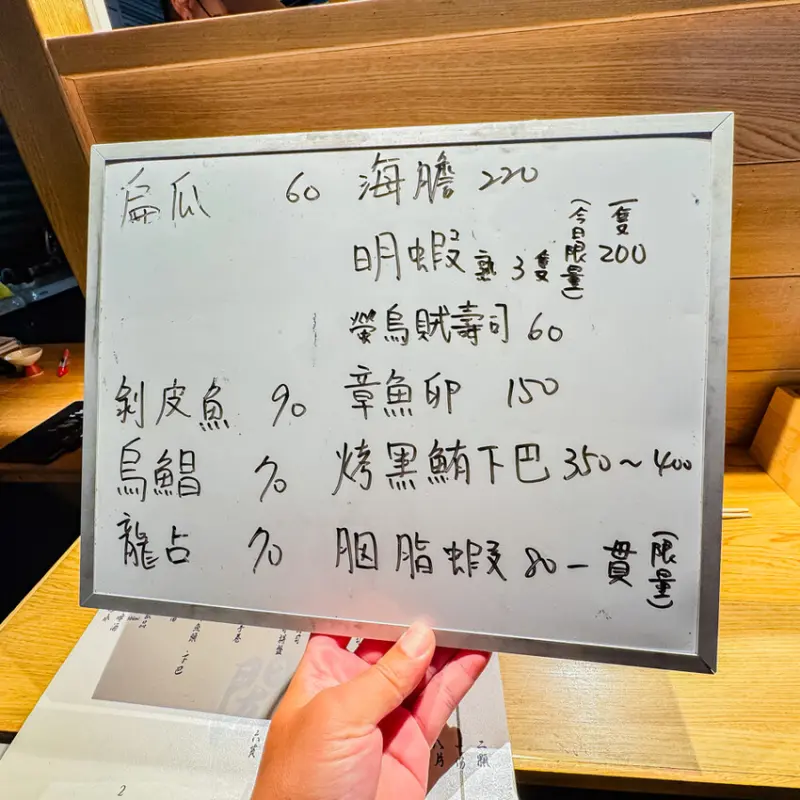 扁瓜 60
剝皮魚 90
烏鯧 70
龍占 70
海膽 220
明蝦 熟 3隻 (今日限量) 一隻 200
螢烏賊壽司 60
章魚卵 150
烤黑鮪下巴 350~400
胭脂蝦 80 一貫 (限量)
下巴
手卷
六貫
八片
2